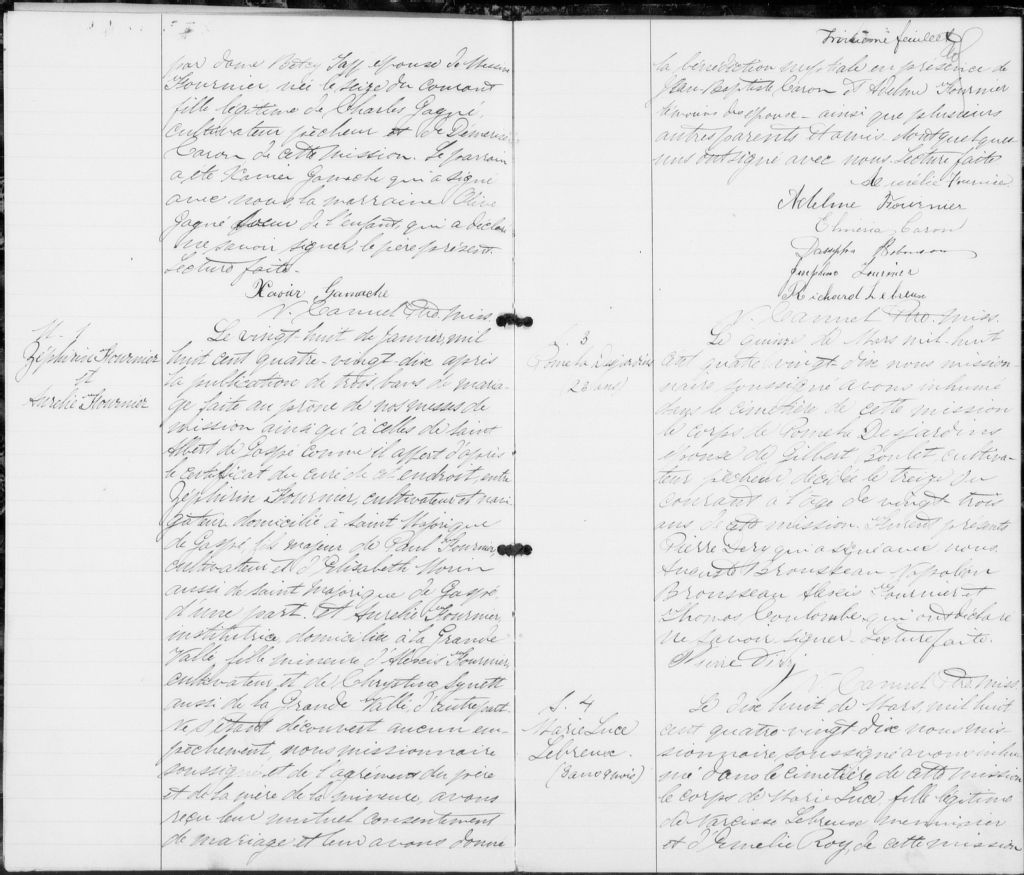 par dame Betsy épouse de
Fournier née le seize du courant
fille légitime de Charles Gagné,
cultivateur pêcheur et de Démerise
Caron de cette mission. Le parrain
a été Xavier Gamache qui a signé
avec nous, la marraine Olive
Gagné soeur de l'enfant, qui a déclaré
ne savoir signer, le père présent.
Lecture faite.
Xavier Gamache
Miss.
M. 1
Zéphirin Fournier
et
Aurélie Fournier
Le vingt-huit de Janvier, mil
huit cent quatre-vingt dix après
la publication de trois bans de maria-
ge faite au prône de nos messes de
mission ainsi qu'à celles de Saint
Albert de Gaspé comme il appert d'après
le certificat du curé de cet endroit, entre
Zéphirin Fournier, cultivateur et navi-
gateur domicilié à Saint Majorique
de Gaspé, fils majeur de Paul Fournier
cultivateur et d'Elisabeth Morin
aussi de Saint Majorique de Gaspé
d'une part. Et Aurélie Fournier,
institutrice domiciliée à la Grande
Vallée, fille mineure d'Alexis Fournier,
cultivateur et de Chrystine Synett
aussi de la Grande Vallée, d'autre part.
Ne s'étant découvert aucun em-
pêchement, nous missionnaire
soussigné et de l'agrément du père
et de la mère de la mineure, avons
reçu leur mutuel consentement
de mariage et leur avons donné
Troisième feuillet
la bénédiction nuptiale en présence de
Jean-Baptiste Caron et Adelme Fournier
témoins des époux - ainsi que plusieurs
autres parents et amis dont quelques
uns ont signé avec nous. Lecture faite
Aurélie Fournier
Adelme Fournier
Elmina Caron
Robinson
Joséphine Fournier
Richard Lebreux
Miss.
S. 3
Desjardins
(23 ans)
Le quinze de Mars mil-huit
cent quatre vingt dix nous mission-
naire soussigné avons inhumé
dans le cimetière de cette mission
le corps de Desjardins
épouse de Gilbert cultiva-
teur pêcheur décédée le treize du
courant à l'âge de vingt trois
ans de cette mission. Furent présents
Pierre Déry qui a signé avec nous.
Auguste Brousseau Napoléon
Brousseau Alexis Fournier et
Thomas Coulombe qui ont déclaré
ne savoir signer. Lecture faite.
Pierre Déry
Miss.
S. 4
Marie Luce
Lebreux
(3 ans 9 mois)
Le dix huit de Mars, mil huit
cent quatre vingt dix nous mis-
sionnaire, soussigné avons inhu-
mé dans le cimetière de cette mission
le corps de Marie Luce, fille légitime
de Narcisse Lebreux menuisier
et d'Emélie Roy, de cette mission